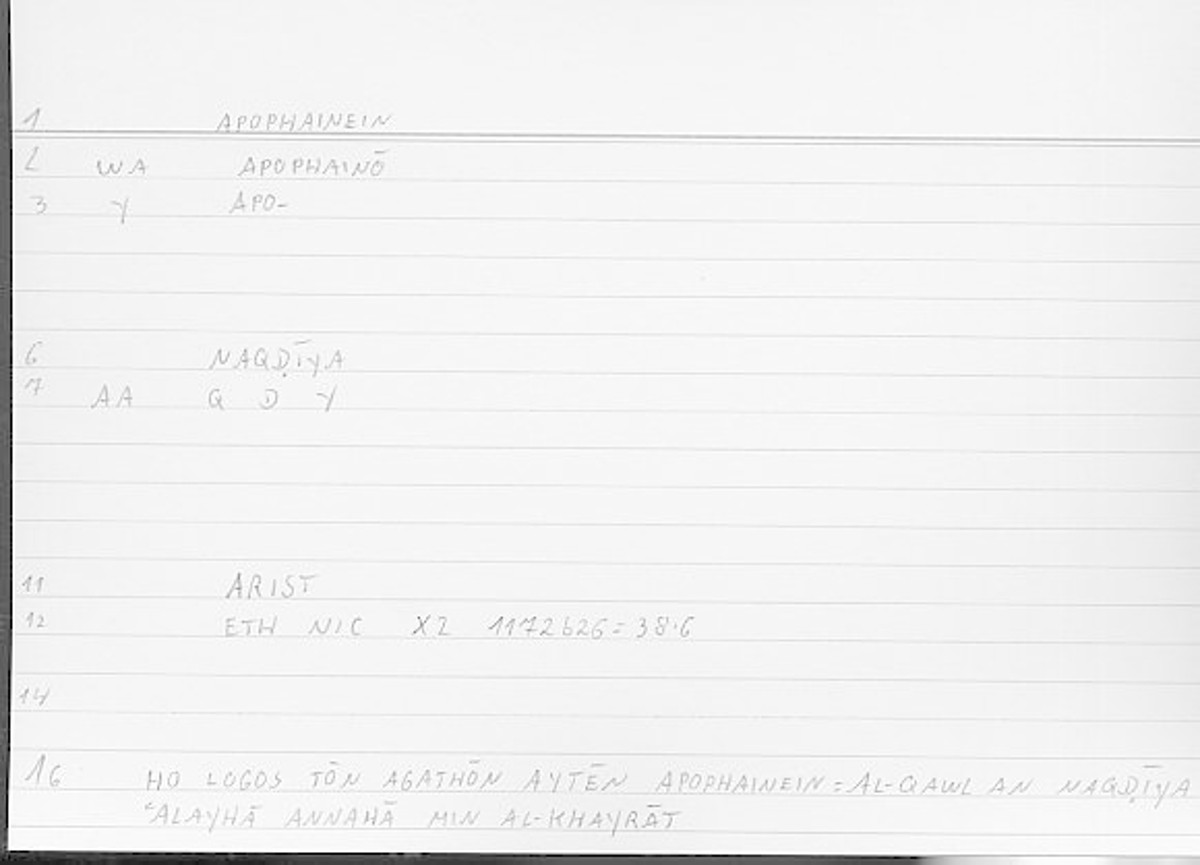 1 APOPHAINEIN
2 WA APOPHAINŌ
3 Y APO-
6 NAQḌĪYA
7 AA Q D Y
11 ARIST
12 ETH NIC X2 1172b26=38.6
14
16 HO LOGOS TŌN AGATHŌN AYTĒN APOPHAINEIN=AL-QAWL AN NAQḌĪYA
ʿALAYHĀ ANNAHĀ MIN AL-KHAYRĀT